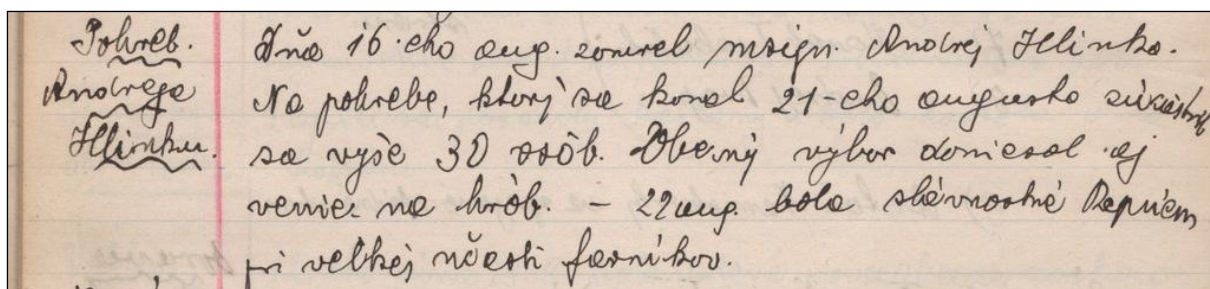 Pohreb.
Andreja
Hlinku.
Dňa 16-eho aug. zomrel msign. Andrej Hlinka.
Na pohrebe, ktorý sa konal 21-eho augusta zúčastnili
sa vyše 30 osôb. Obecný výbor doniesol aj
veniec na hrob. – 22 aug. bola slávnostné Requiem
pri veľkej účasti farníkov.